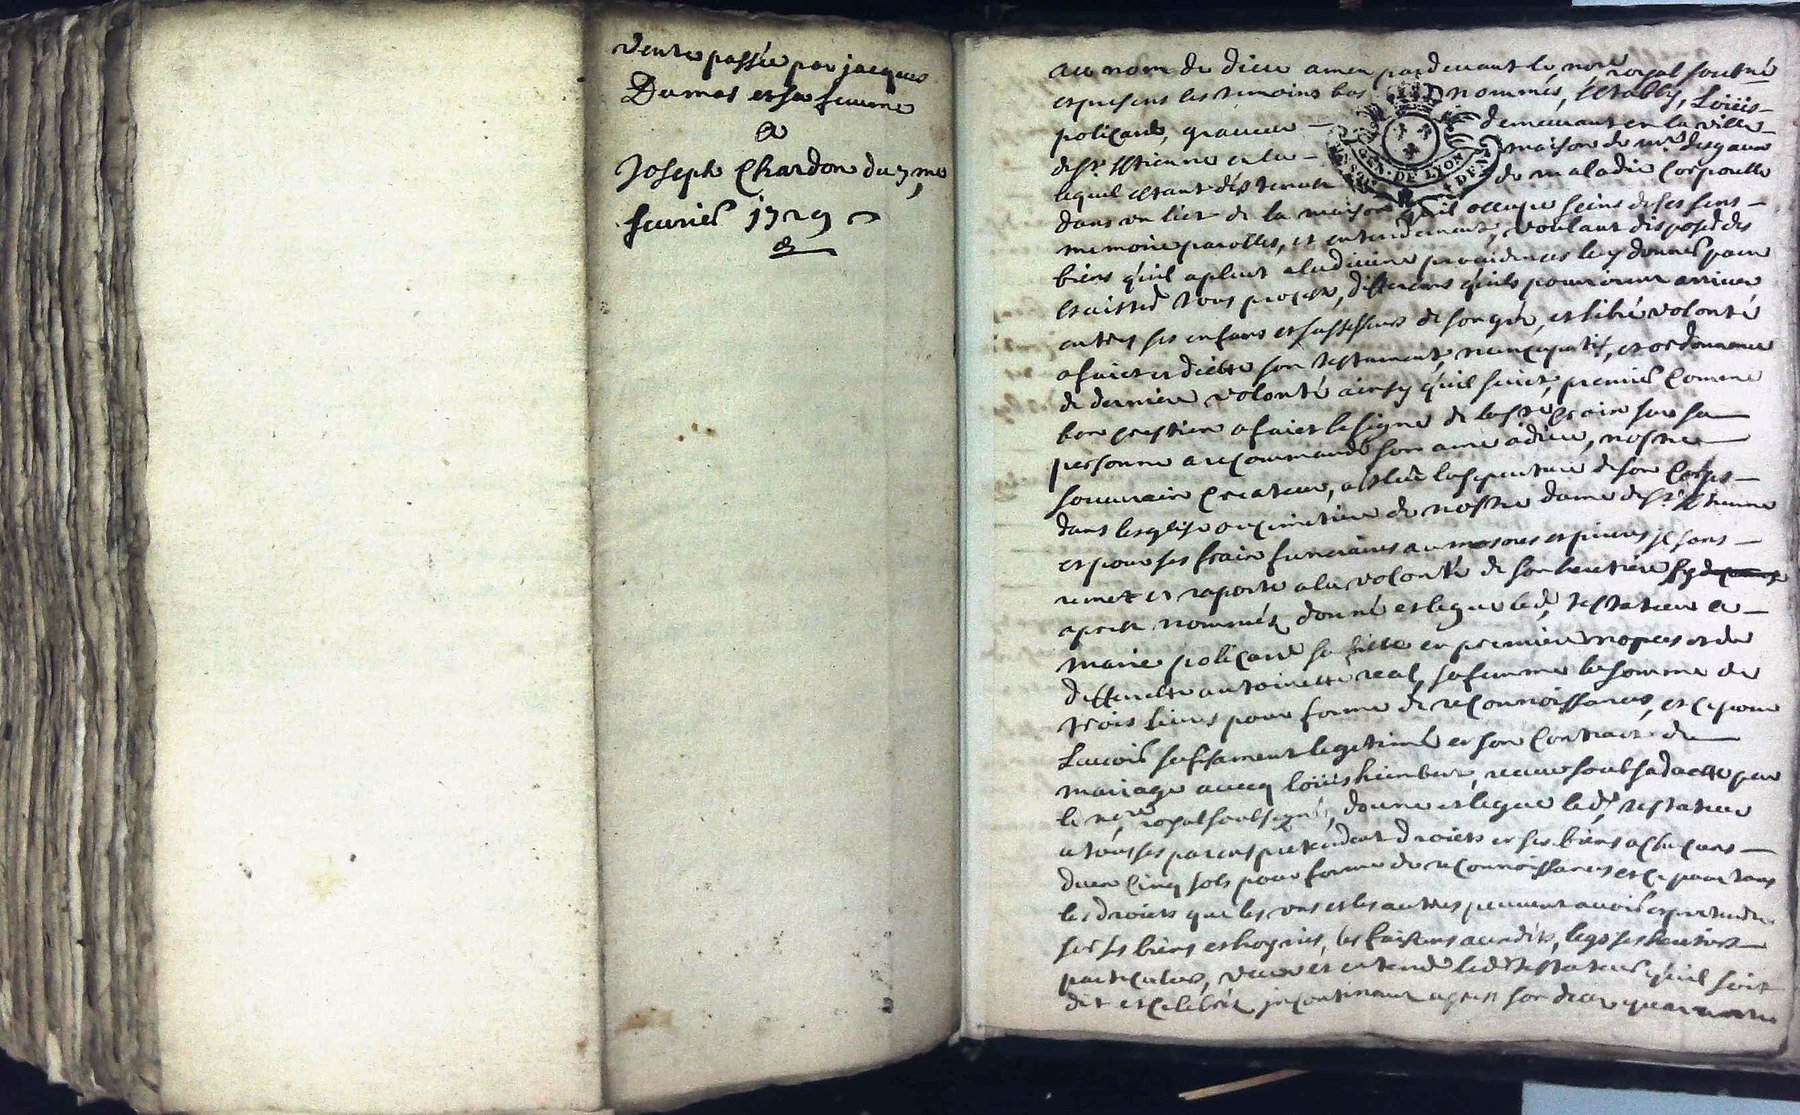 Vente passée par jacques
Dumas et sa femme
a
Joseph Chardon du 7me
fevrier 1729
au nom de dieu amen pardevant le nore royal soubné
et presens les temoins bas nommés, establly, Loüis
poliçard, graveur demeurant en la ville
de St Estienne en la maison de mr
lequel estant detenu de maladie corporelle
dans un lict de la maison qu'il occupe sains de ses sens
memoire parolles, et entendement, voulant disposer des
biens qu'il a pleut a la divine providence luy donner pour
esvitter tous proces, differens qu'ils pourroient arriver
entres ses enfans et susesseurs de son gré, et libre volonté
a faict et dicté son testament nuncupatif, et ordonnance
de derniere volonté ainsy qu'il suict, premier comme
bon crestien a faict le signe de la ste croix sur sa
personne a recommandé son ame a dieu, nostre
souverain createur, a esleu la sepulture de son corps
dans lesglise ou cimetiere de nostre dame de St Estienne
et pour ses frais funeraires aumosnes et prieres
remet et raporte a la volonté de son heritiere
apres nommée, donne et legue led. testateur a
marie poliçard sa fille en premiere nopces et de
deffuncte antoinette real sa femme la somme de
trois livres pour forme de reconnoissances, et ce pour
L'avoir sufisament legitimé en son contract de
mariage avecq loüis himbert, receu soubs sa datte par
le nore royal soubsigné, donne et legue led. testateur
a tous ses parens pretendant droicts en ses biens a chacuns
d'eux cinq sols pour forme de reconnoissances et ce pour tous
les droicts que les uns et les autres peuvent avoir et pretendre
sur ses biens et hoyries, les faisans aux dits legs ses heritiers
particuliers, veut et entend led. testateur qu'il soit
dit et celebré incontinant apres son deces quarante